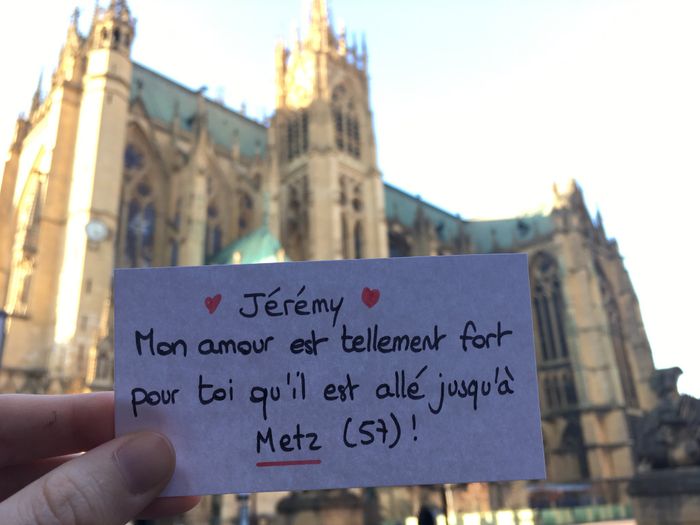 Jérémy
Mon amour est tellement fort
pour toi qu'il est allé jusqu'à
Metz (57) !